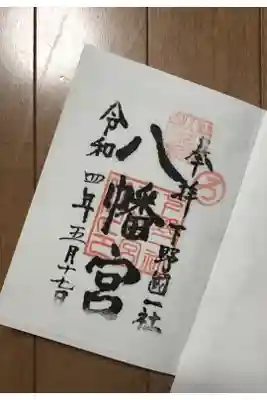 奉拝
下野国一社
八幡宮
令和四年五月十七日